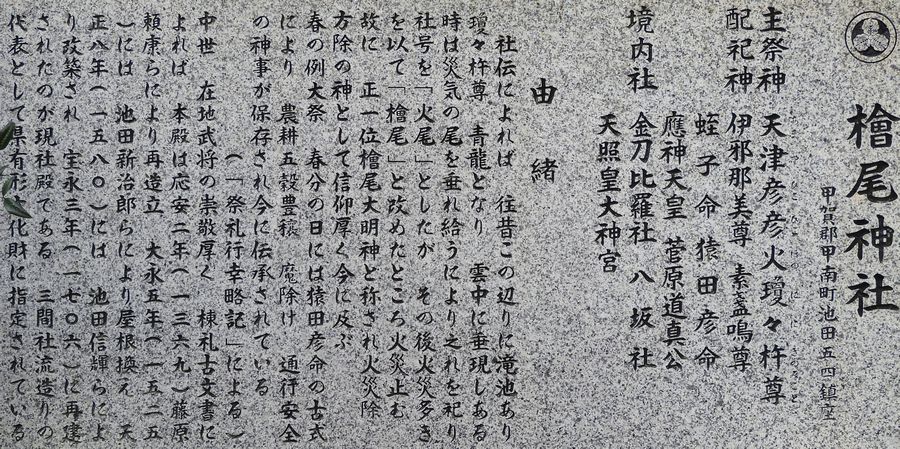 檜尾神社
甲賀郡甲南町池田五四鎮座
主祭神 天津彦彦火瓊々杵尊
配祀神 伊邪那美尊 素盞鳴尊
蛭子命 猿田彦命
應神天皇 菅原道真公
境内社 金刀比羅社 八坂社
天照皇大神宮
由緒
社伝によれば 往昔この辺りに滝池あり
瓊々杵尊 青龍となり 雲中に垂現しある
時は災気の尾を垂れ給うにより之れを祀り
社号を「火尾」としたが その後火災多き
を以て「檜尾」と改めたところ火災止む
故に 正一位檜尾大明神と称され火災除
方除の神として信仰厚く今に及ぶ
春の例大祭 春分の日には猿田彦命の古式
により 農耕五穀豊穣 魔除け 通行安全
の神事が保存され今に伝承されている
(「祭礼行幸略記」による)
中世 在地武将の崇敬厚く 棟札古文書に
よれば 本殿は応安二年(一三六九)藤原
頼康らにより再造立 大永五年(一五二五
)には 池田新治郎らにより屋根換え 天
正八年(一五八〇)には 池田信輝らによ
り改築され 宝永三年(一七〇六)に再建
されたのが現社殿である 三間社流造りの
代表として県有形文化財に指定されている